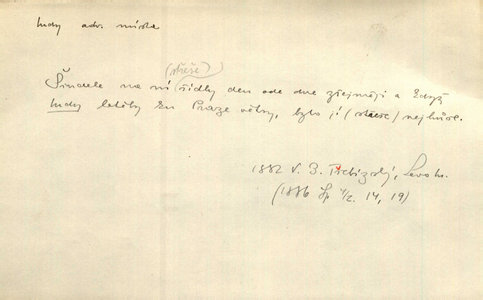 kudy adv. místa
(střeše)
Šindele na ní řídly den ode dne zřejměji a když
kudy letěly ku Praze větry, bylo jí (střeše) nejhůře.
1882 V. B. Třebízský, Levoh.
(1886 Sp. 14, 19)